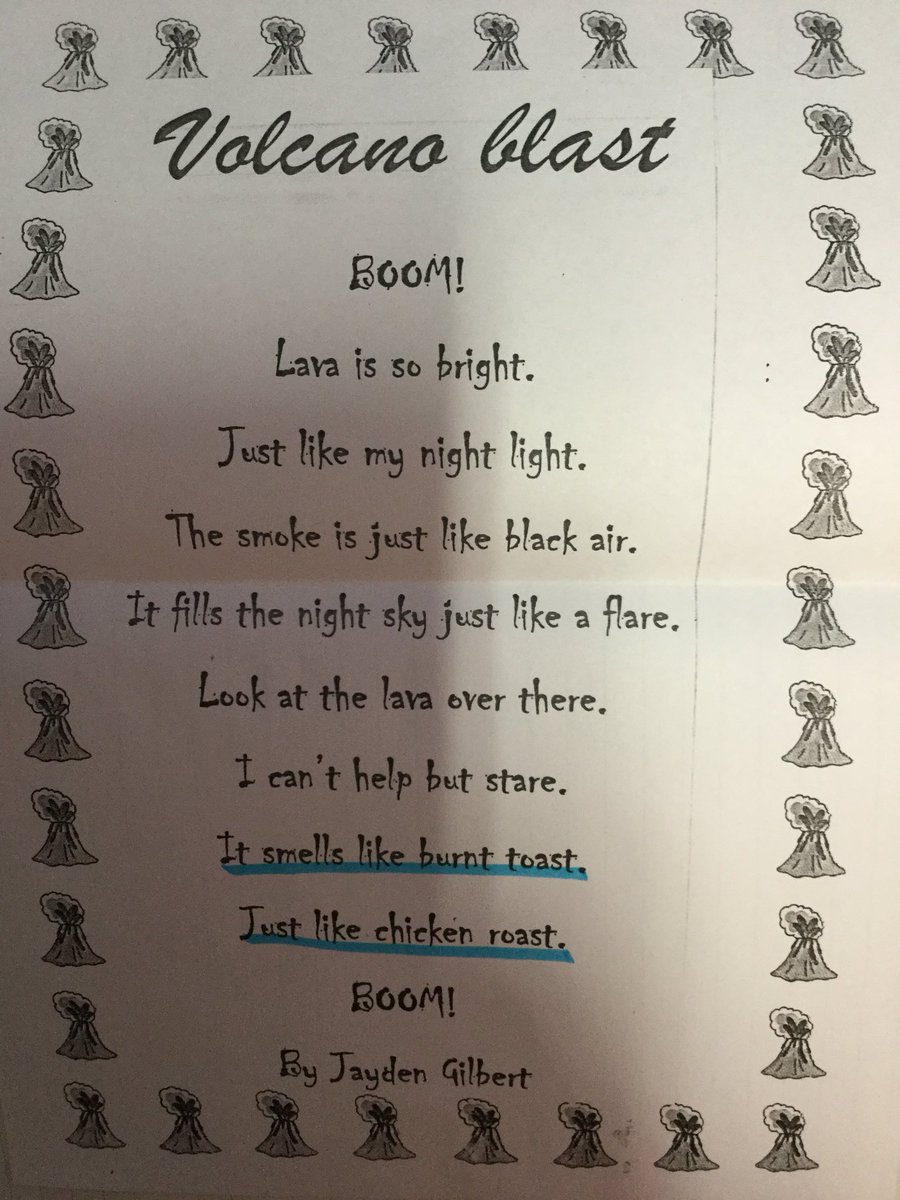 Volcano blast
BOOM!
Lava is so bright.
Just like my night light.
The smoke is just like black air.
It fills the night sky just like a flare.
Look at the lava over there.
I can't help but stare.
It smells like burnt toast.
Just like chicken roast.
BOOM!
By Jayden Gilbert